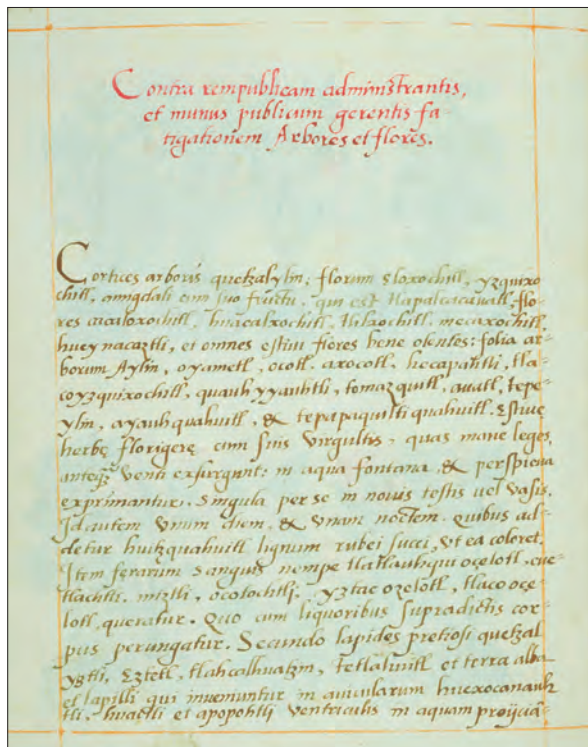 Contra rempublicam administrantis,
et munus publicum gerentis fa-
tigationem Arbores et flores.
Cortices arboris quetzalylin: florum eloxochitl, yzquixo
chitl, amigdali cum suo fructu, qui est tlapalcacauatl, flo-
res cacaloxochitl, huacalxochitl, tlilxochitl, mecaxochitl,
huey nacaztli, et omnes estiui flores bene olentes: folia ar-
borum Aylin, oyametl, ocotl, axocotl, hecapahtli, tla-
coyzquixochitl, quauh yyauhtli, tomazquitl, auatl, tepe-
ylin, ayauhquahuitl, & tepapaquilti quahuitl. Estiuę
herbę florigerę cum suis virgultis, quas mane leges,
anteqȝ venti exsurgunt: in aqua fontana, & perspicua
exprimantur. singula per se in nouis testis uel vasis.
Id autem vnum diem, & vnam noctem. quibus ad-
detur huitzquahuitl lignum rubei succi, vt ea coloret.
Item ferarum sanguis nempe tlatlauhqui oçelotl, cue
tlachtli, miztli, ocotochtli, yztac oçelotl, tlaco oçe
lotl, queratur. Quo cum liquoribus supradictis cor-
pus perungatur. Secundo lapides pretiosi quetzal
yztli, Eztetl, tlahcalhuatzin, tetlahuitl et terra alba
et lapilli qui inueniuntur in auicularum huexocanauh
tli, huactli et apopohtli ventriculis in aquam proijciā-